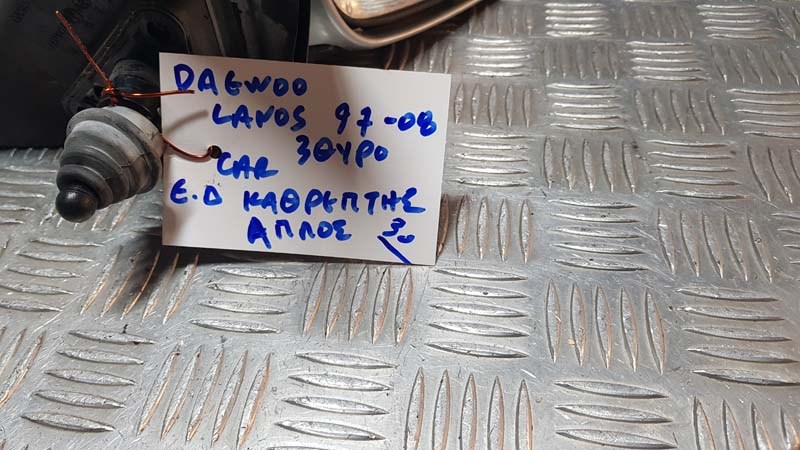 DAEWOO
LANOS 97-08
3ΘΥΡΟ
CAR
Ε.Δ ΚΑΘΡΕΠΤΗΣ
ΑΠΛΟΣ 30